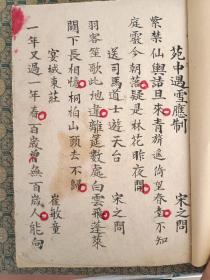 苑中遇雪應制 宋之問
紫禁仙輿詰旦來青旂遙倚望春臺不知
庭霰今朝落疑是林花昨夜開
送司馬道士遊天台 宋之問
羽客笙歌此地違離筵數處白雲飛蓬萊
闕下長相憶桐柏山頭去不歸
宴城東莊 崔敏童
一年又過一年春百歲曾無百歲人能向